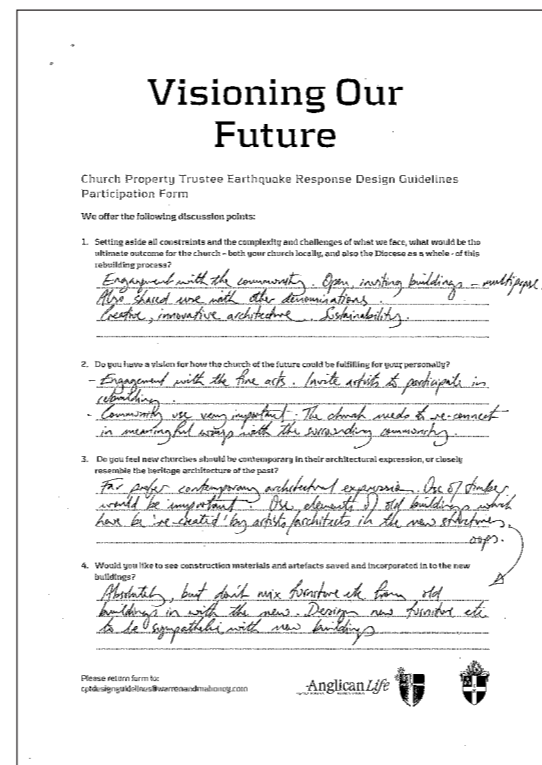 Visioning Our
Future
Church Property Trustee Earthquake Response Design Guidelines
Participation Form
We offer the following discussion points:
1. Setting aside all constraints and the complexity and challenges of what we face, what would be the
ultimate outcome for the church – both your church locally, and also the Diocese as a whole – of this
rebuilding process?
Engagement with the community. Open, inviting buildings – multipurpose.
Also shared use with other denominations.
Creative, innovative architecture. Sustainability.
2. Do you have a vision for how the church of the future could be fulfilling for your personally?
– Engagement with the fine arts. Invite artists to participate in
rebuilding.
- Community use very important. The church needs to re-connect
in meaningful ways with the surrounding community.
3. Do you feel new churches should be contemporary in their architectural expression, or closely
resemble the heritage architecture of the past?
Far prefer contemporary architectural expression. Use of timber
would be important. Use elements of old buildings which
have be 're-created' by artists/architects in the new structures.
oops.
4. Would you like to see construction materials and artefacts saved and incorporated in to the new
buildings?
Absolutely, but don't mix furniture etc from old
buildings in with the new. Design new furniture etc
to be sympathetic with new buildings
Please return form to:
cptdesignguidelines@warrenandmahoney.com
Anglican Life